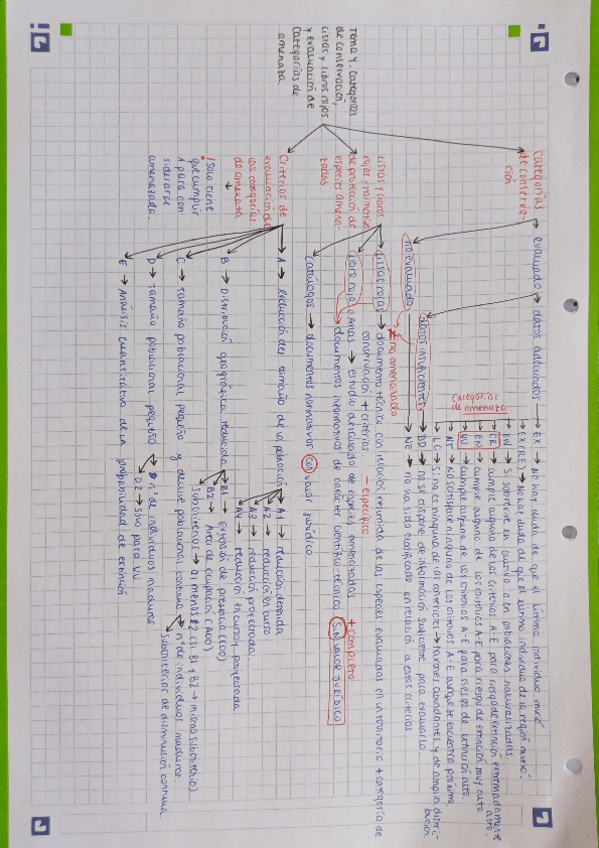 Tema 4. Categorías
de conservación,
listas y libros rojos
y evaluación de
categorías de
amenaza.
Categorías
de conserva-
ción
evaluado → datos adecuados
Categorías
de amenaza
EX → No hay duda de que el último individuo murió.
EX(RE) → No hay duda de que el último individuo de la región murió.
EW → Si sobrevive en cultivo o en poblaciones naturalizadas
CR → cumple alguno de los criterios A-E para riesgo de extinción extremadamente
alto.
EN → cumple alguno de los criterios A-E para riesgo de extinción muy alto.
VU → cumple alguno de los criterios A-E para riesgo de extinción alto.
NT → No satisfacer ninguno de los criterios A-E aunque se encuentra próximo.
LC → Si no es ninguno de los anteriores → taxones abundantes y de amplia distri-
bución.
datos insuficientes
DD → no se dispone de información suficiente para evaluarlo.
no evaluado
NE → no ha sido clasificado en relación a estos criterios
≠ no amenazado
Listas y libros
rojos, normativa
de protección de
especies amena-
zadas
Listas rojas → documento técnico con relación resumida de las especies evaluadas en un territorio + categoría de
conservación + criterios
- específico
Libro rojo o Atlas → estudio detallado de especies amenazadas
+ completo
documentos informativos de carácter científico-técnico
Sin valor jurídico
Catálogos → documentos normativos con valor jurídico
Criterios de
evaluación de
las categorías
de amenaza
! Solo tiene
que cumplir
1 para con
siderarse
amenazada.
A → Reducción del tamaño de la población
A1 → reducción detenida
A2 → reducción en curso
A3 → reducción proyectada
A4 → reducción en curso y proyectada.
B → Distribución geográfica reducida
B1 → Extensión de presencia (EOO)
B2 → Área de ocupación (AOO)
Subcriterios → al menos 2 (si B1 + B2 → mismo subcriterio).
C → Tamaño poblacional pequeño y declive poblacional continuo
nº de individuos maduros.
Subcriterios de disminución continua.
D → Tamaño poblacional pequeño
nº de individuos maduros
D2 → solo para VU
E → Análisis cuantitativo de la probabilidad de extinción